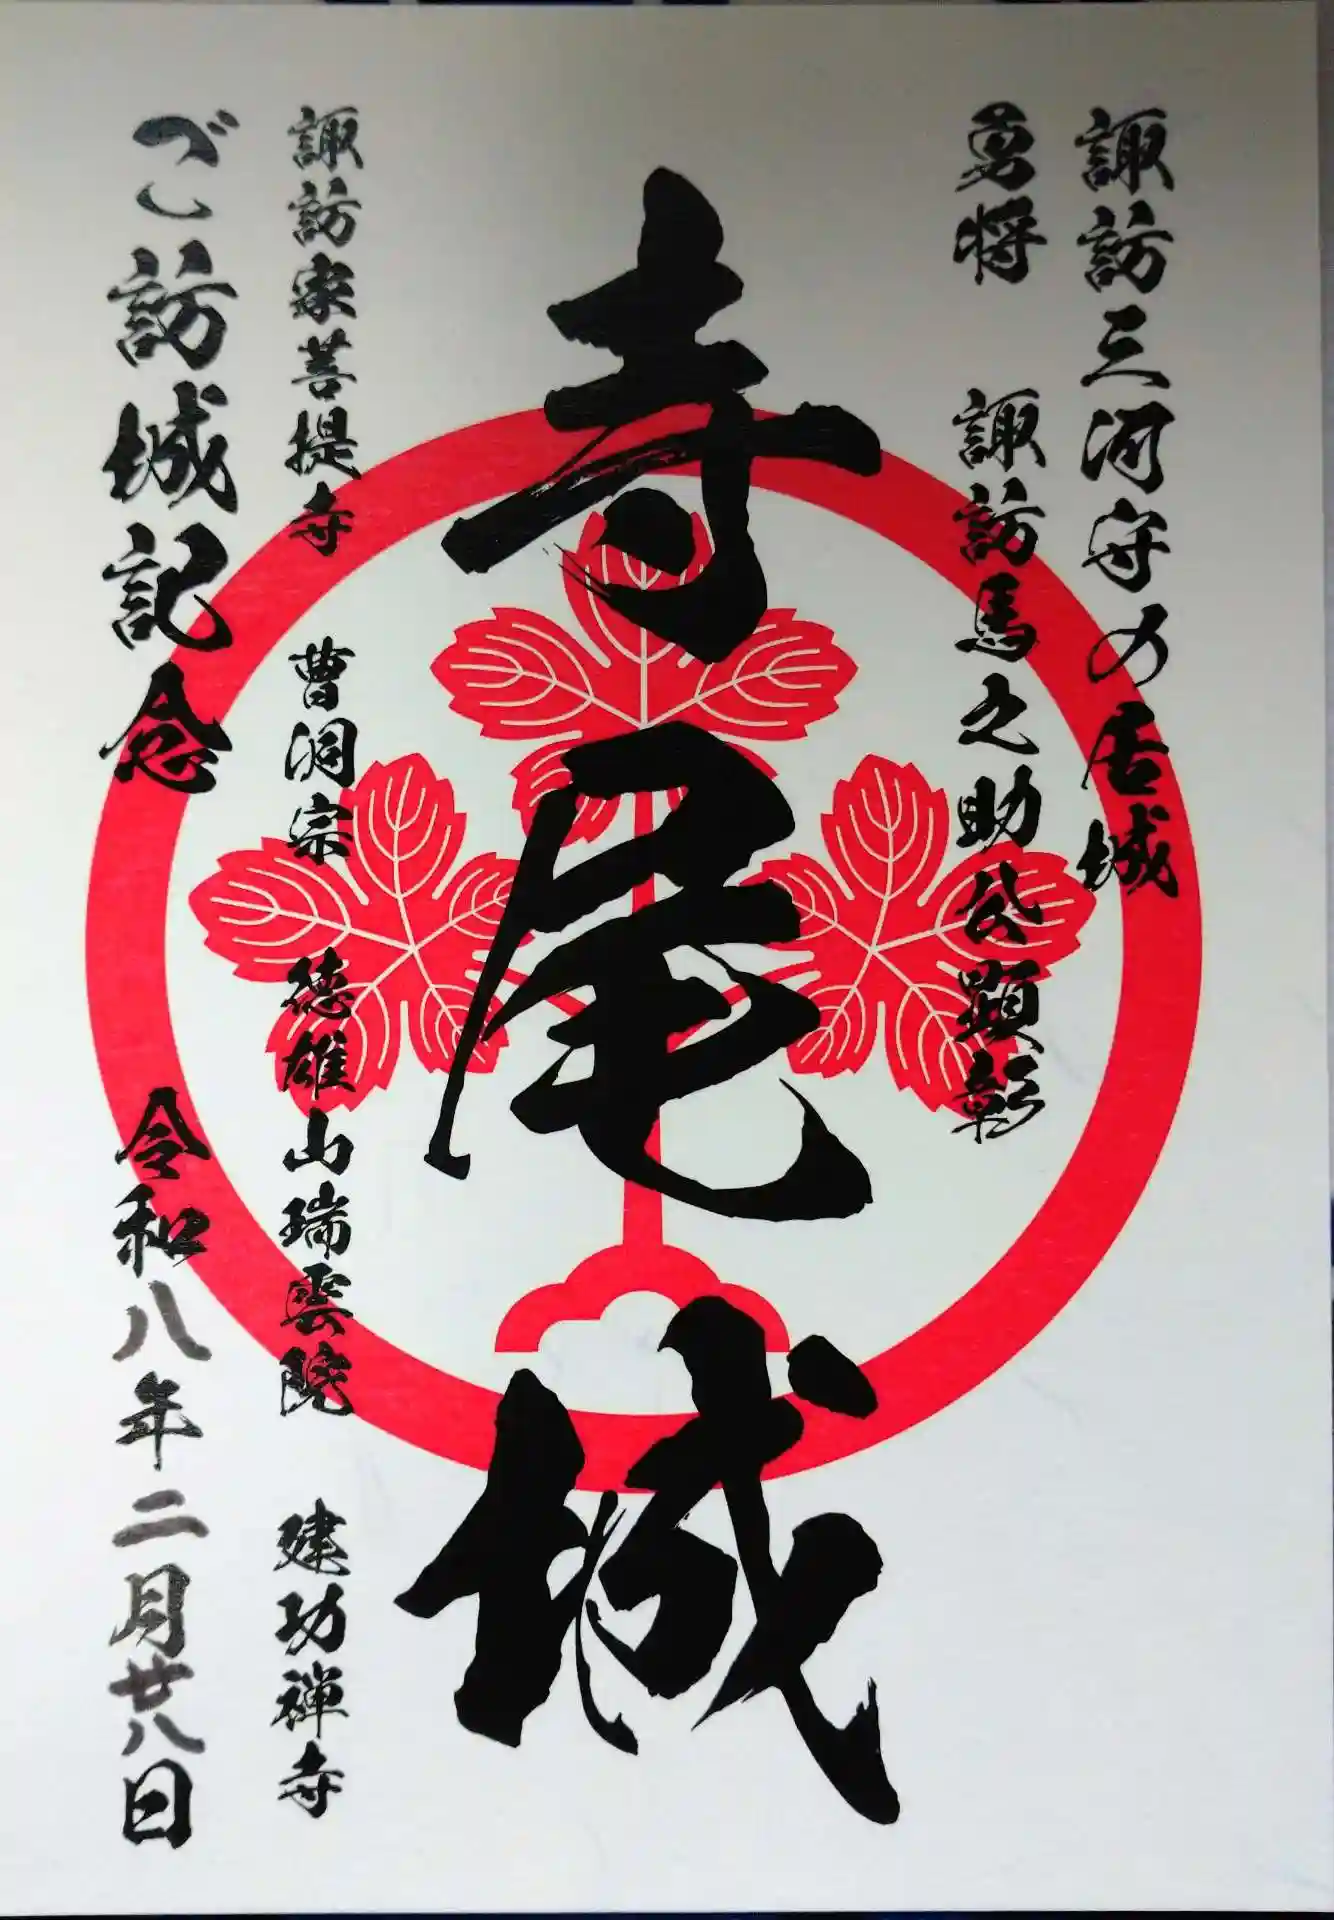 諏訪三河守の居城
勇将 諏訪馬之助公顕彰
寺尾城
諏訪家菩提寺 曹洞宗 徳雄山瑞雲院 建功禅寺
ご訪城記念 令和八年二月廿八日